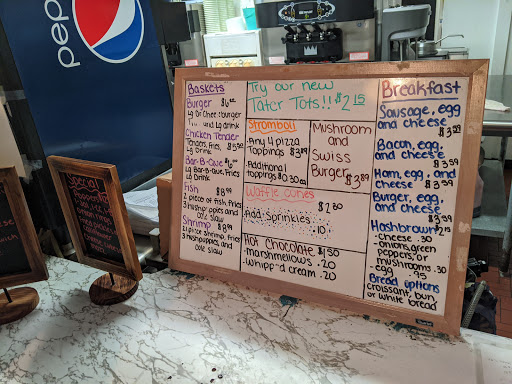 pepsi
Special
Baskets
Burger $6.00
Lg Or Cheeseburger
and Lg drink
Chicken Tender
Tenders, Fries, $5.50
Lg Drink
Bar-B-Que
Lg Bar-B-Que, Fries
Lg Drink
Fish $8.99
2 piece of fish, Fries
3 hushpuppies and
cole slaw
Shrimp $9.99
shrimp or, Fries
3 hushpuppies, and
cole slaw
Try our new
Tater Tots!! $2.15
Stromboli
-Any 4 pizza
toppings
-Additional
toppings
Mushroom
and
Swiss
Burger $3.89
Waffle cones
$2.60
Add Sprinkles
.10
Hot Chocolate $1.50
-marshmallows .20
-whipped cream .20
Breakfast
Sausage, egg
and cheese
$3.59
Bacon, egg,
and cheese
$3.59
Ham, egg, and
cheese $3.59
Burger, egg,
and cheese
$3.59
Hashbrown
-cheese .30
-onions, green
peppers, or
mushrooms .30
egg .95
Bread options
croissant, bun,
or white bread